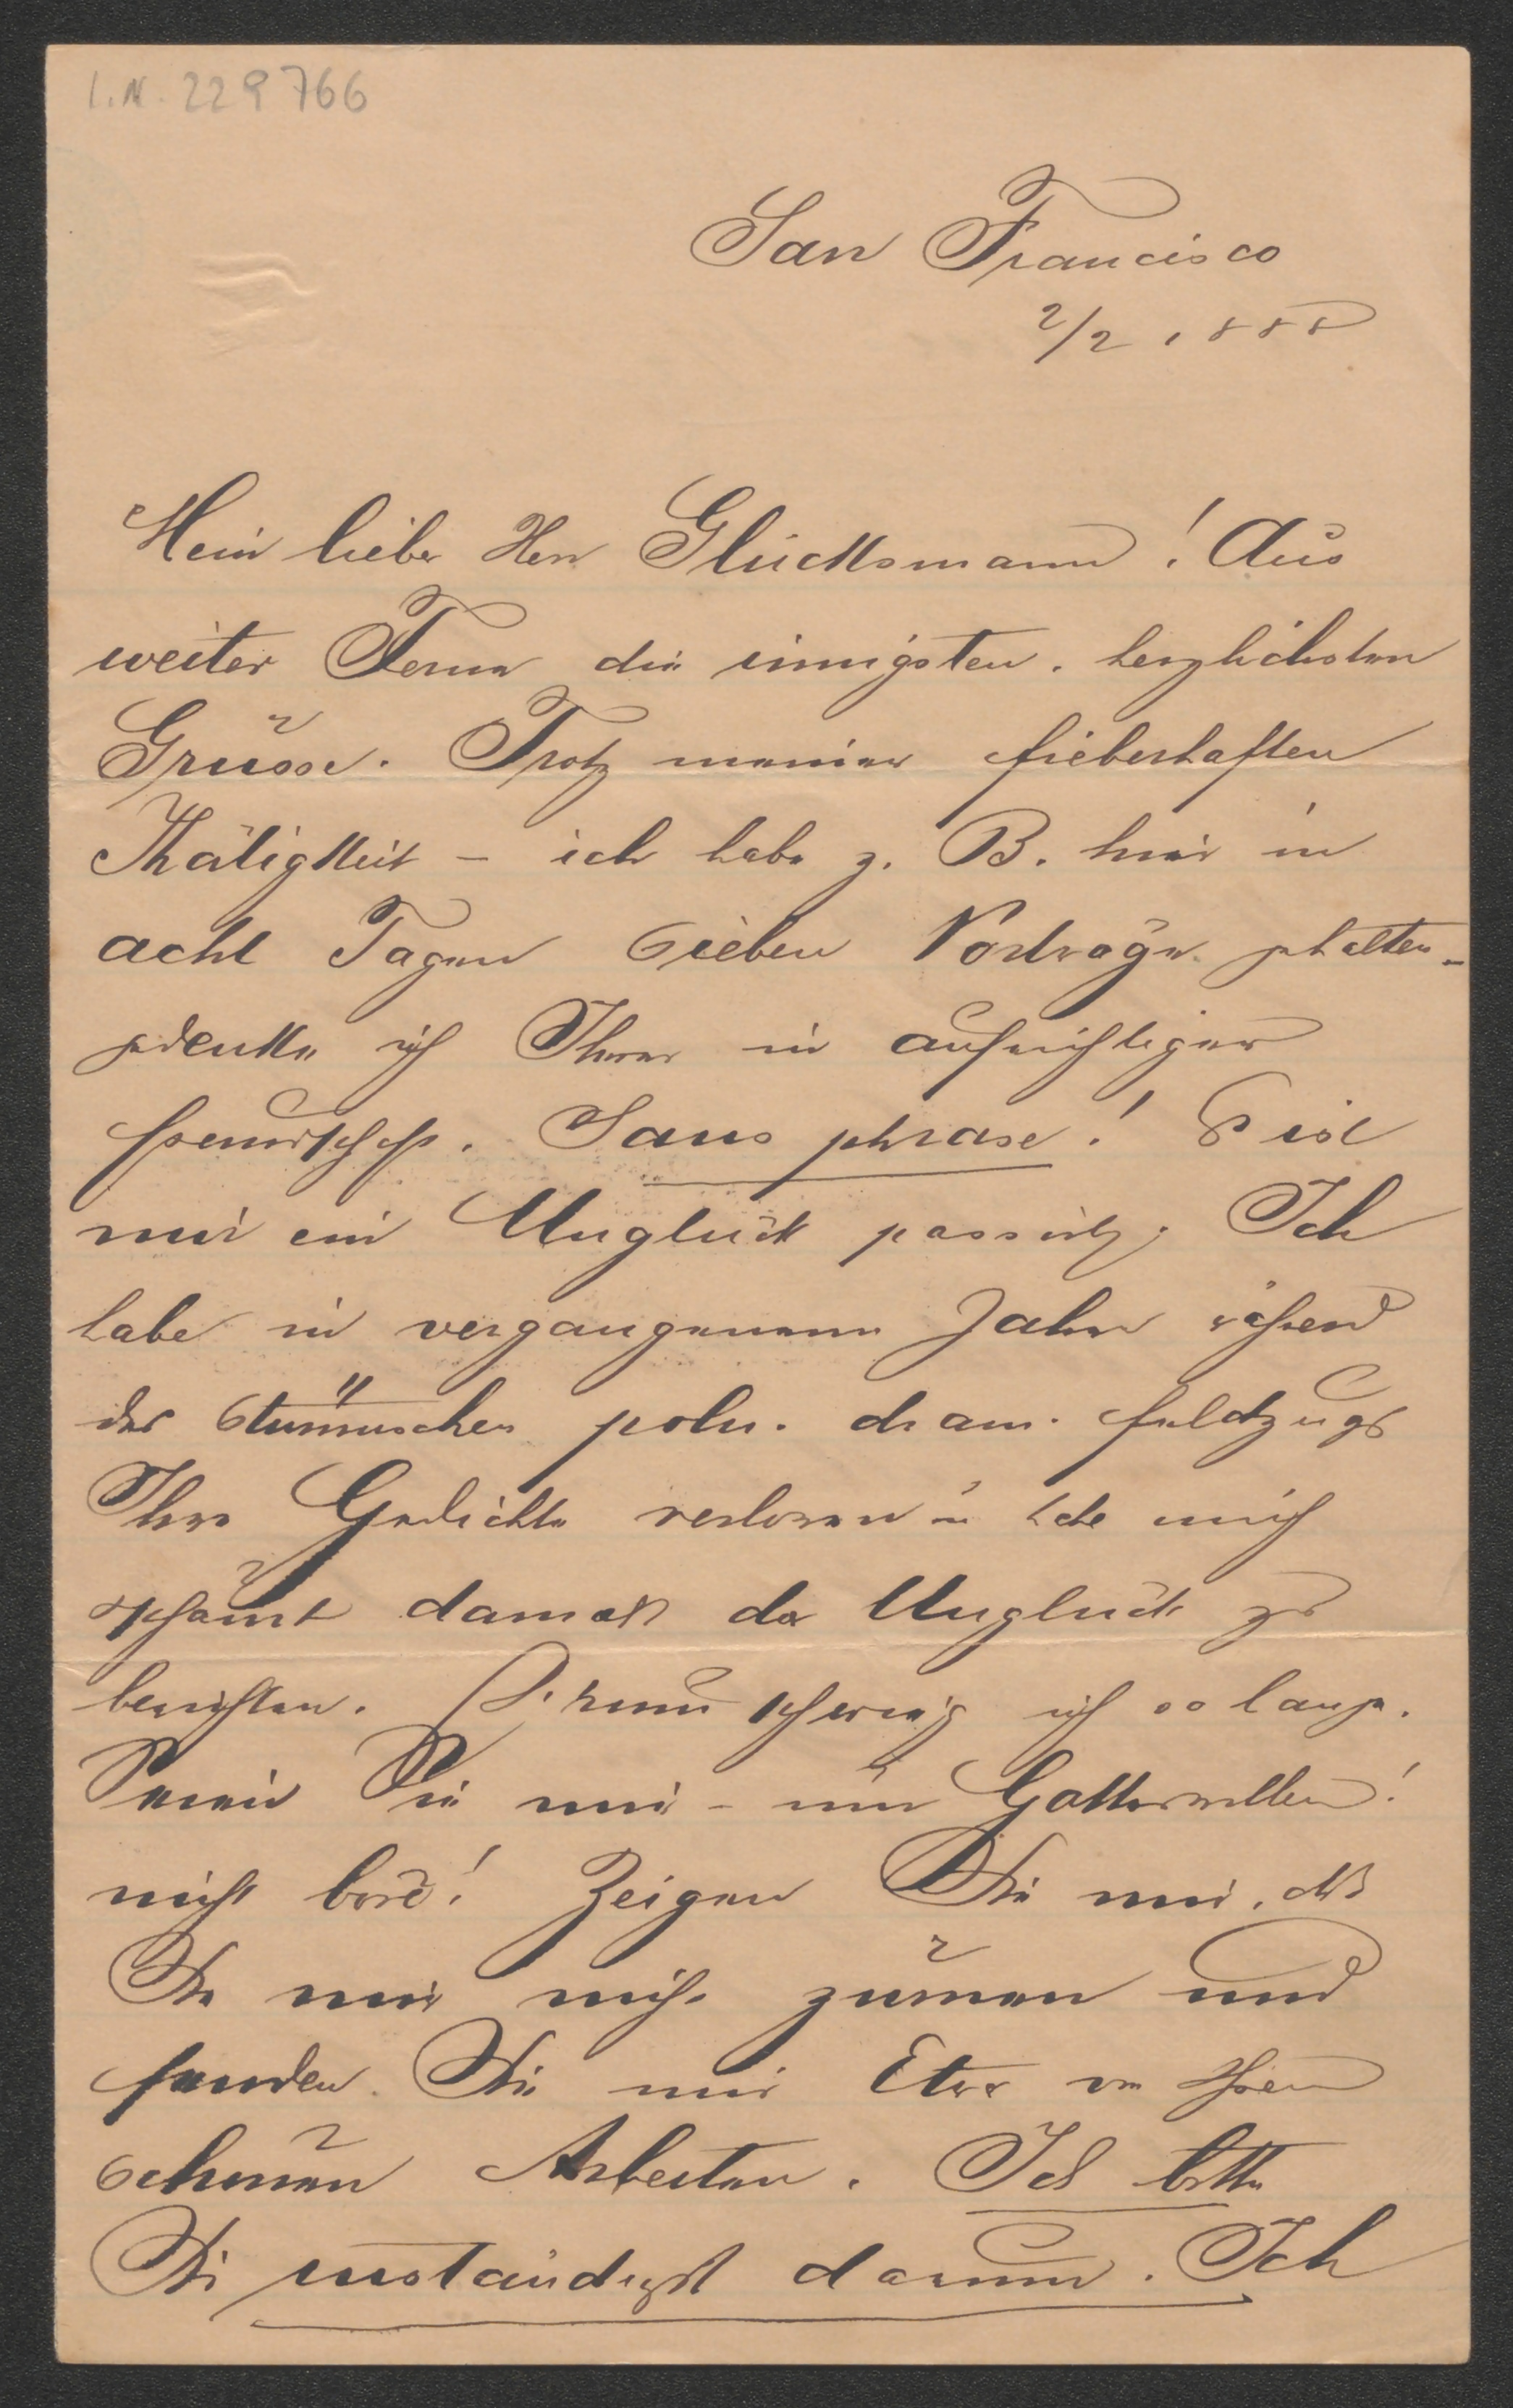 I.N. 229766
San Francisco
2/2 1888
Mein lieber Herr Glücksmann! Aus
weiter Ferne die innigsten, herzlichsten
Grüsse. Trotz meiner fieberhaften
Thätigkeit – ich habe z. B. hier in
acht Tagen sieben Vorträge gehalten –
gedenke ich Ihrer in aufrichtiger
Freundschaft. Sans phrase! Es ist
mir ein Unglück passirt; Ich
habe im vergangenen Jahre während
des stürmischen poln. dram. Feldzugs
Ihre Gedichte verloren u. habe mich
geschämt damals das Unglück zu
berichten. Darum schwieg ich so lange.
Seien Sie mir – um Gotteswillen!
nicht bös! Zeigen Sie mir, dß
Sie mir nicht zürnen und
senden Sie mir Etwas von Ihren
schönen Arbeiten. Ich bitte
Sie inständigst darum. Ich